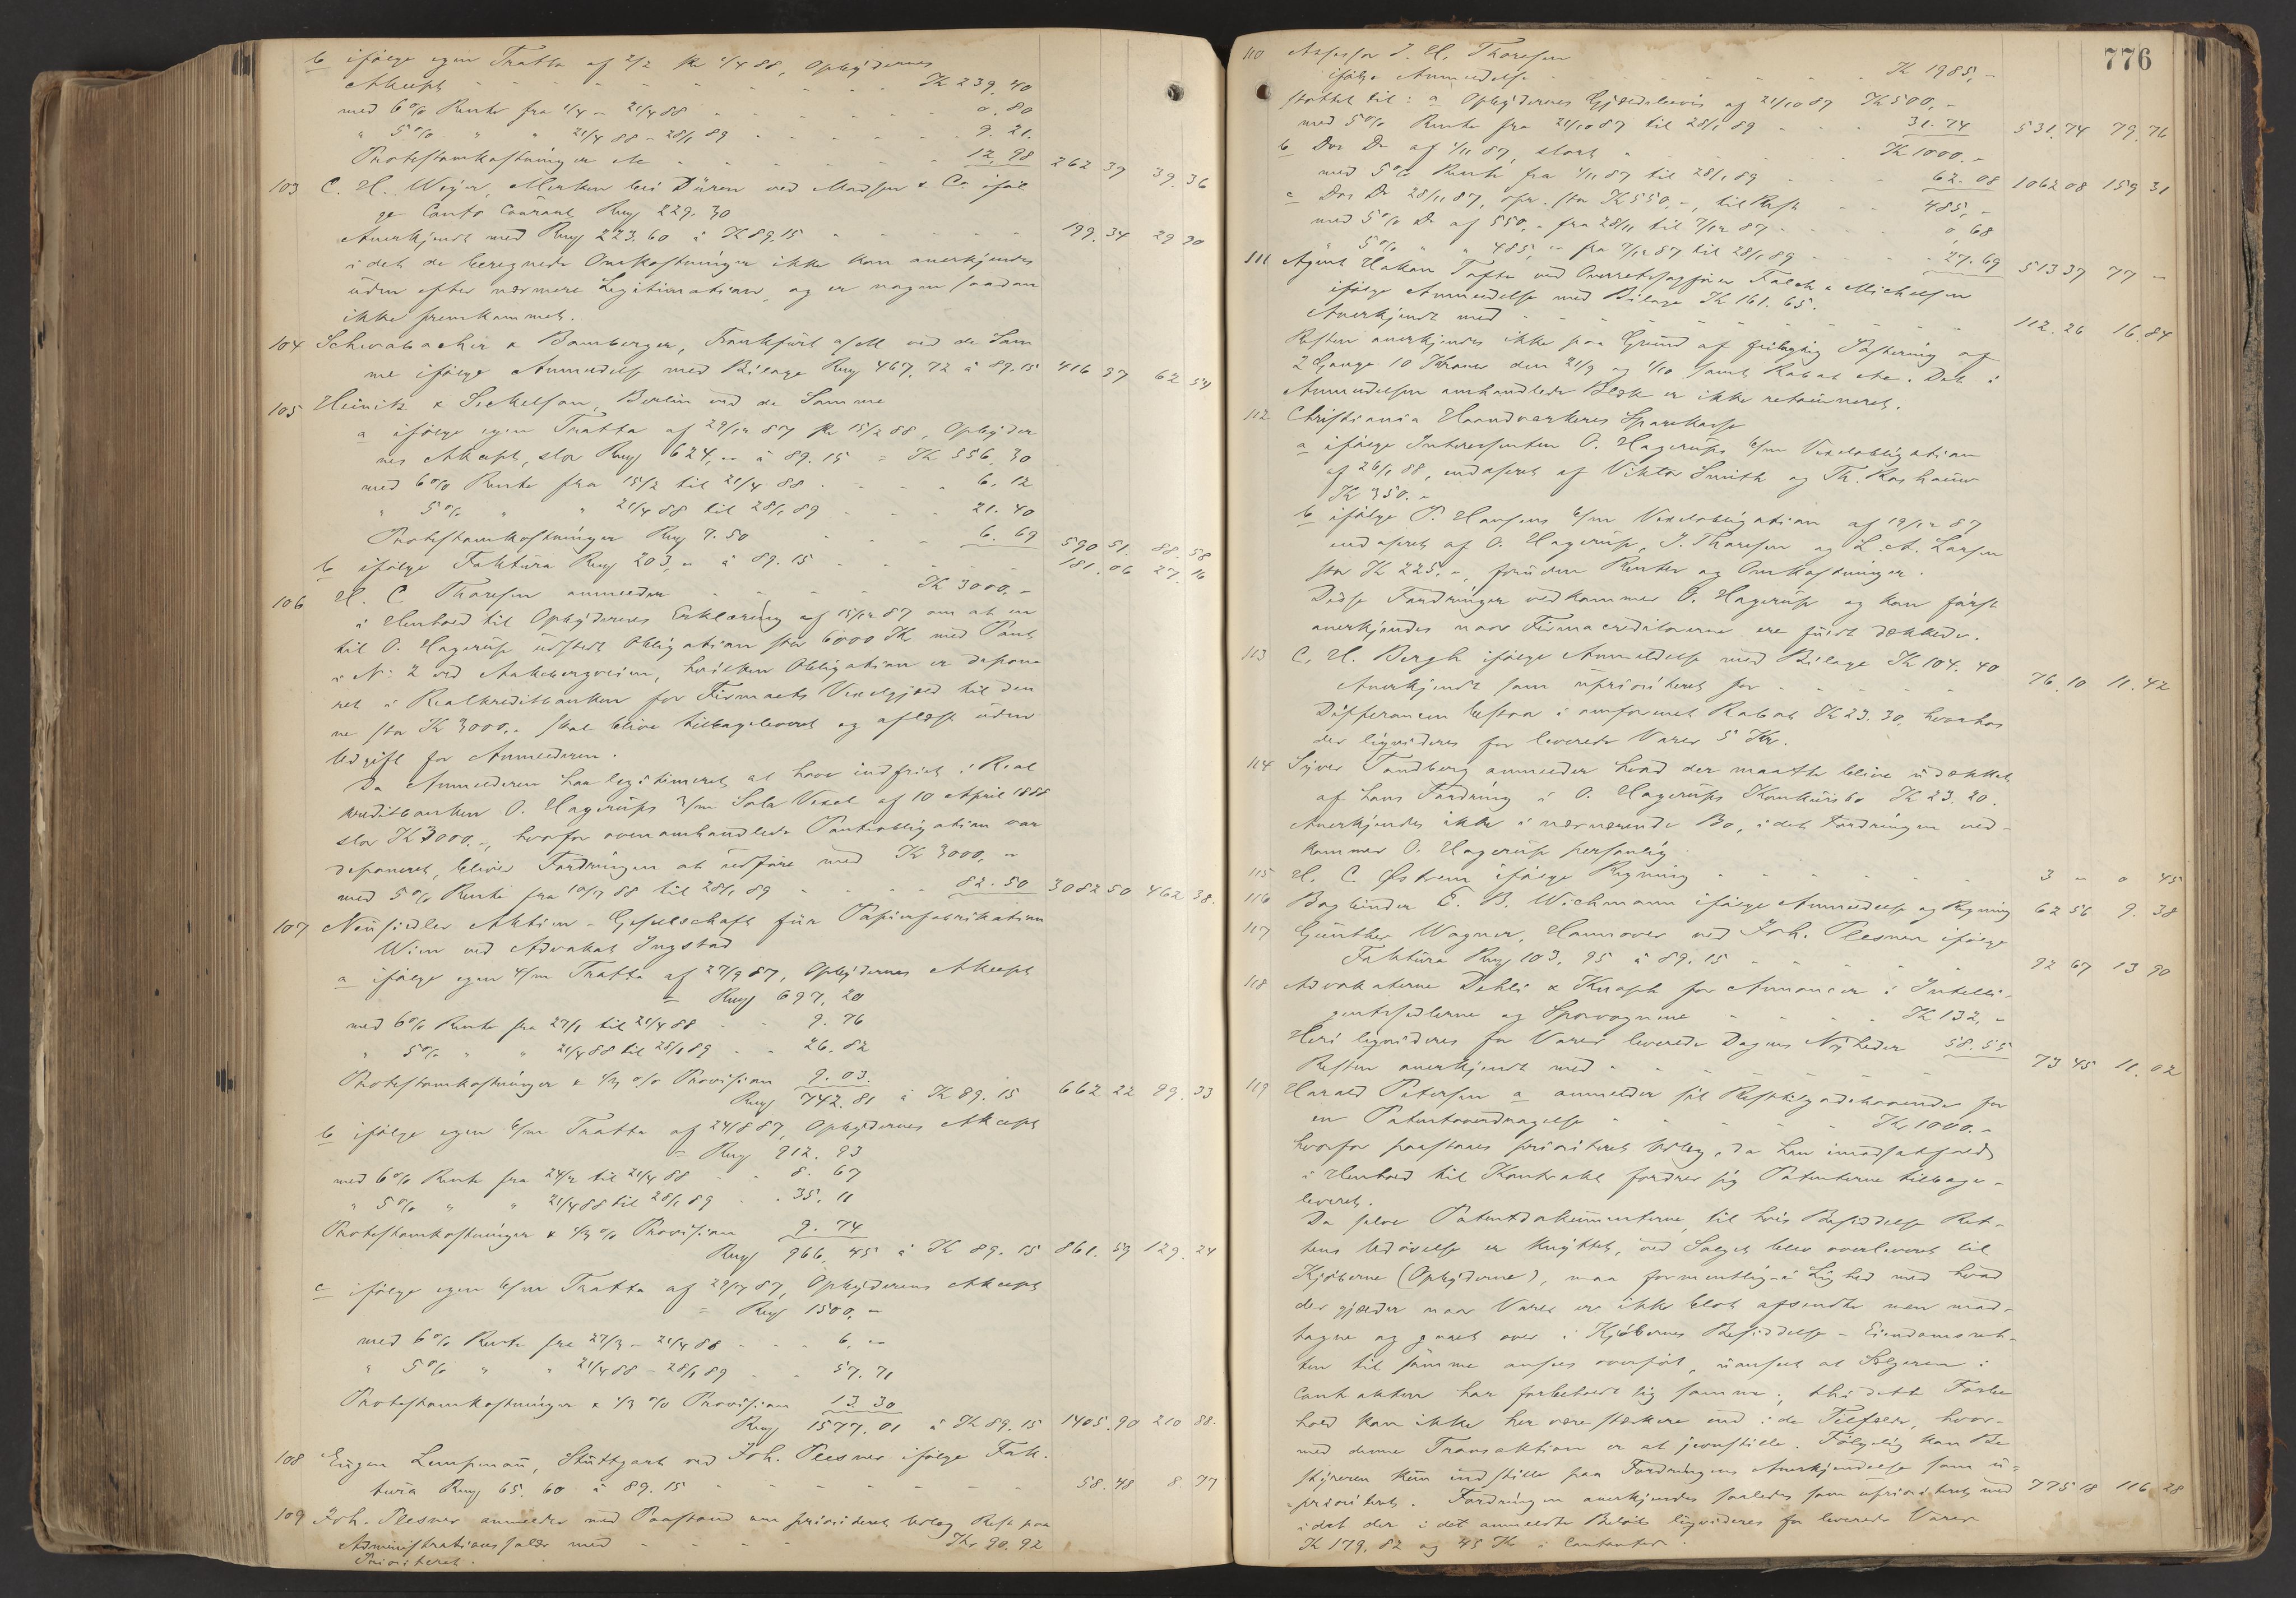 b ifölge egen Tratta af 2/2 pr 1/4 88, Opbydernes
Akcept - - - - - - - K 239. 40
med 6% Rente fra 1/4 - 21/4 88 - - - 0. 80
" 5% " " 21/4 88 - 28/1 89 - - - 9. 21.
Protestomkostninger etc - - - - 12. 98 262 39 39. 36
103 C. H. Weyer, Merken bei Düren ved Madsen & Co iföl
ge Conto Courant Rmf 229. 30
Anerkjendt med Rmf 223. 60 à K 89.15 - - - 199. 34 29 90
i det de beregnede Omkostninger ikke kan anerkjendes
uden efter nærmere Legitimation, og er nogen saadan
ikke fremkommet.
104 Schwabacher & Bamberger, Frankfurt a/M ved de Sam
me ifölge Anmeldelse med Bilage Rmf 467. 72 à 89.15 416 97 62 54
105 Heinitz & Seckelson, Berlin ved de Samme
a ifölge egen Tratta af 29/12 87 pr 15/2 88, Opbyder
nes Akcept, stor Rmf 624, - à 89.15 = K 556. 30
med 6% Rente fra 15/2 til 21/4 88 - - - 6. 12
" 5% " " 21/4 88 til 28/1 89 - - - 21. 40
Protestomkostninger Rmf 7. 50 - - - 6. 69 590 51. 88. 58
b ifölge Faktura Rmf 203, - à 89. 15 - - - 181. 06 27. 16
106 H. C Thoresen anmelder - - - K 3000, -
i Henhold til Opbydernes Erklæring af 15/12 87 om at en
til O. Hagerup udstedt Obligation stor 6000 K med Pant
i No 2 ved Akebergveien, hvilken Obligation er depone
ret i Realkreditbanken for Firmaets Vexelgjæld til den
ne stor K 3000. - skal blive tilbageleveret og aflæst uden
Udgift for Anmelderen.
Da Anmelderen har legitimeret at have indfriet i Real
kreditbanken O. Hagerups 3/m Sola Vexel af 10 April 1888
stor K 3000. -, hvorfor ovenomhandlede Pantobligation var
deponeret, bliver Fordringen at udföre med K 3000, -
med 5% Rente fra 10/7 88 til 28/1 89 - - - 82. 50 3082 50 462 38.
107 Neusiedler Aktien - Gesellschaft für Papierfabrikation
Wien ved Advokat Ingstad
a ifölge egen 4/m Tratta af 27/9 87, Opbydernes Akcept
= Rmf 697. 20
med 6% Rente fra 27/1 til 21/4 88 - - 9. 76
" 5% " " 21/4 88 til 28/1 89 - - 26. 82
Protestomkostninger & 1/3 % Provision 9. 03.
Rmf 742. 81 à K 89. 15 662 22 99. 33
b ifölge egen 6/m Tratta af 24/8 87, Opbydernes Akcept
= Rmf 912. 93
med 6% Rente fra 24/2 til 21/4 88 - - 8. 67
" 5% " " 21/4 88 til 28/1 89 - - 35. 11
Protestomkostninger & 1/3 % Provision 9. 74
Rmf 966, 45 à K 89. 15 861. 59 129. 24
c ifölge egen 6/m Tratta af 29/9 87, Opbyderens Akcept
= Rmf 1500, -
med 6% Rente fra 27/3 - 21/4 88 - - - 6, -
" 5% " " 21/4 88 - 28/1 89 - - 57. 71
Protestomkostninger & 1/3 % Provision 13 30
Rmf 1577. 01 à K 89. 15 1405. 90 210 88.
108 Eugen Lempenau, Stuttgart ved Joh. Plesner ifölge Fak.
tura Rmf 65. 60 à 89. 15 - - - 58. 48 8. 77
109 Joh. Plesner anmelder med Paastand om prioriteret Udlæg Rest paa
Administrationssalær med - - - Kr 90. 92
Prioriteret.
776
110 Assessor J. H. Thoresen
ifölge Anmeldelse - - - K 1985, -
støttet til: a Opbydernes Gjældsbevis af 21/10 87 K 500. -
med 5% Rente fra 21/10 87 til 28/1 89 - - - 31. 74 531. 74 79. 76
b Dos Do af 1/11 87, stort - - - K 1000. -
med 5% Rente fra 1/11 87 til 28/1 89 - - - 62. 08 1062 08 159 31
c Dos Do 28/11 87, opr. stor K 550, -, til Rest - - 485, -
med 5% Do af 550. - fra 28/11 til 7/12 87 - - - 0, 68
5% " " 485, - fra 7/12 87 til 28/1 89 - - - 27. 69 513 37 77 -
111 Agent Hakon Tofte ved Overretssagfører Falch & Michelsen
ifölge Anmeldelse med Bilage K 161. 65.
Anerkjendt med - - - 112. 26 16. 84
Resten anerkjendes ikke paa Grund af feilagtig Postering af
2 Gange 10 Kroner den 21/9 og 1/10 samt Rabat etc. Det i
Anmeldelsen omhandlede Blæk er ikke retourneret.
112 Christiania Haandværkeres Sparekasse
a ifölge Interessenten O. Hagerups 6/m Vexelobligation
af 26/1 88, endosseret af Viktor Smith og Th.
K 350. -
b ifölge P. Hansens 6/m Vexelobligation af 19/12 87
endosseret af O. Hagerup, J. Thoresen og L. A. Larsen
stor K 225. -, foruden Renter og Omkostninger.
Disse Fordringer vedkommer O. Hagerup og kan först
anerkjendes naar Firmacreditorerne ere fuldt dækkede.
113 C. H. Bergh ifölge Anmeldelse med Bilage K 104. 40
Anerkjendt som uprioriteret for - - - 76. 10 11. 42
Differencen bestaar i omforenet Rabat K 23. 30. hvorhos
der ligvideres for leverede Varer 5 Kr.
114 Syver Tandberg anmelder hvad der maatte blive udækket
af hans Fordring i O. Hagerups Konkursbo K 23. 20.
Anerkjendes ikke i nærværende Bo, idet Fordringen ved-
kommer O. Hagerup personlig
115 H. C Østrem ifölge Regning - - - 3 - 0 45
116 Bogbinder E. B. Wichmann ifölge Anmeldelse og Regning 62 56 9. 38
117 Günther Wagner, Hannover ved Joh. Plesner ifölge
Faktura Rmf 103. 95 à 89. 15 - - - 92 67 13 90
118 Advokaterne Dehli & Knoph for Annoncer i Intelli-
gentssedlerne og Sporvognene - - - K 132, -
Heri ligvideres for Varer leverede Dagens Nyheder 58. 55
Resten anerkjendt med - - - 73 45 11. 02
119 Harald Petersen a anmelder sit Resttilgodehavende for
en Patentoverdragelse - - - Kr 1000. -
hvorfor paastaaes prioriteret Udlæg, da han imodsatfald
i Henhold til Kontrakt fordrer sig Patenterne tilbage-
leveret.
Da selve Patentdokumenterne, til hvis Besiddelse Ret-
tens Udøvelse er knyttet, ved Salget blev overleveret til
Kjøberne (Opbyderne), maa formentlig - i Lighed med hvad
der gjælder naar Varer er ikke blot afsendte men mod-
tagne og gaaet over i Kjøbernes Besiddelse - Eiendomsret-
ten til samme ansees overført, uanset at Sælgeren i
Contrakten har forbeholdt sig samme; thi dette Forbe
hold kan ikke her være stærkere end i de Tilfælde, hvor-
med denne Transaktion er at jevnstille. Følgelig kan Be
styreren kun indstille paa Fordringens Anerkjendelse som u-
prioriteret. Fordringen anerkjendes saaledes som uprioriteret med 775 18 116 28
idet der i det anmeldte Beløb ligvideres for leverede Varer
K 179. 82 og 45 K i Contanter.